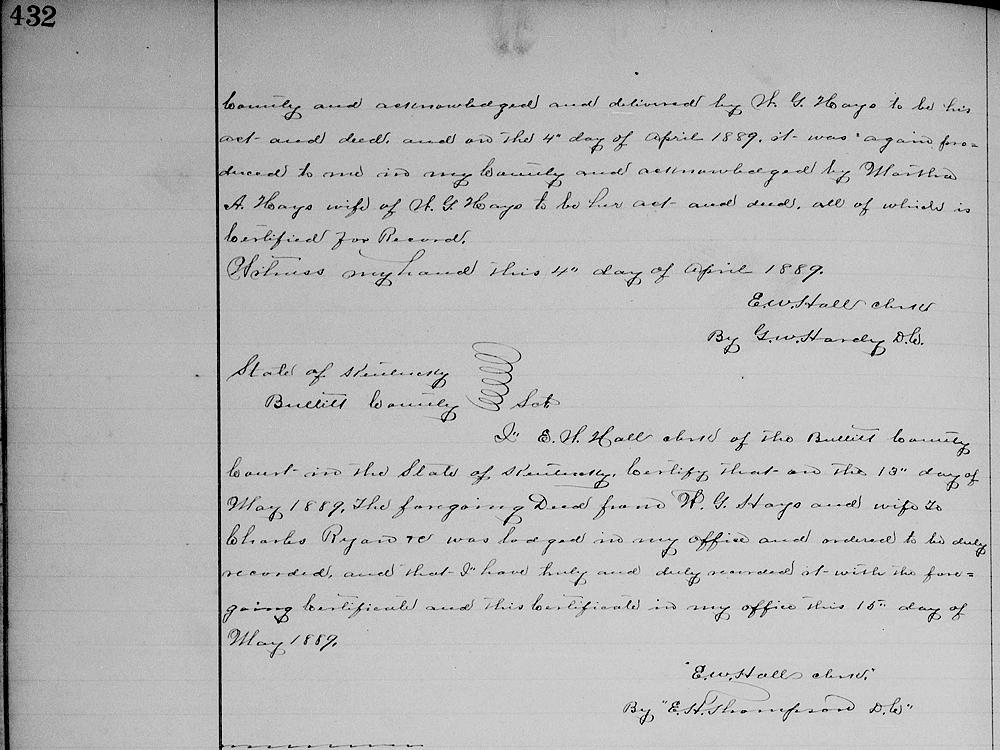 432
County and acknowledged and delivered by W. G. Hays to be his
act and deed, and on the 4" day of April 1889, it was again pro=
duced to me in my County and acknowledged by Martha
A. Hays wife of W. G. Hays to be her act and deed, all of which is
Certified for Record.
Witness my hand this 4" day of April 1889.
E. W. Hall Clerk
By G. W. Hardy D.C.
State of Kentucky
Bullitt County Sct
I" E. W. Hall Clerk of the Bullitt County
Court in the State of Kentucky, Certify that on the 13" day of
May 1889, The foregoing Deed from W. G. Hays and wife To
Charles Ryan &c was lodged in my office and ordered to be duly
recorded, and that I" have truly and duly recorded it with the fore=
going Certificate and this Certificate in my office this 15" day of
May 1889.
"E. W. Hall Clerk"
By "E. H. Thompson D.C"